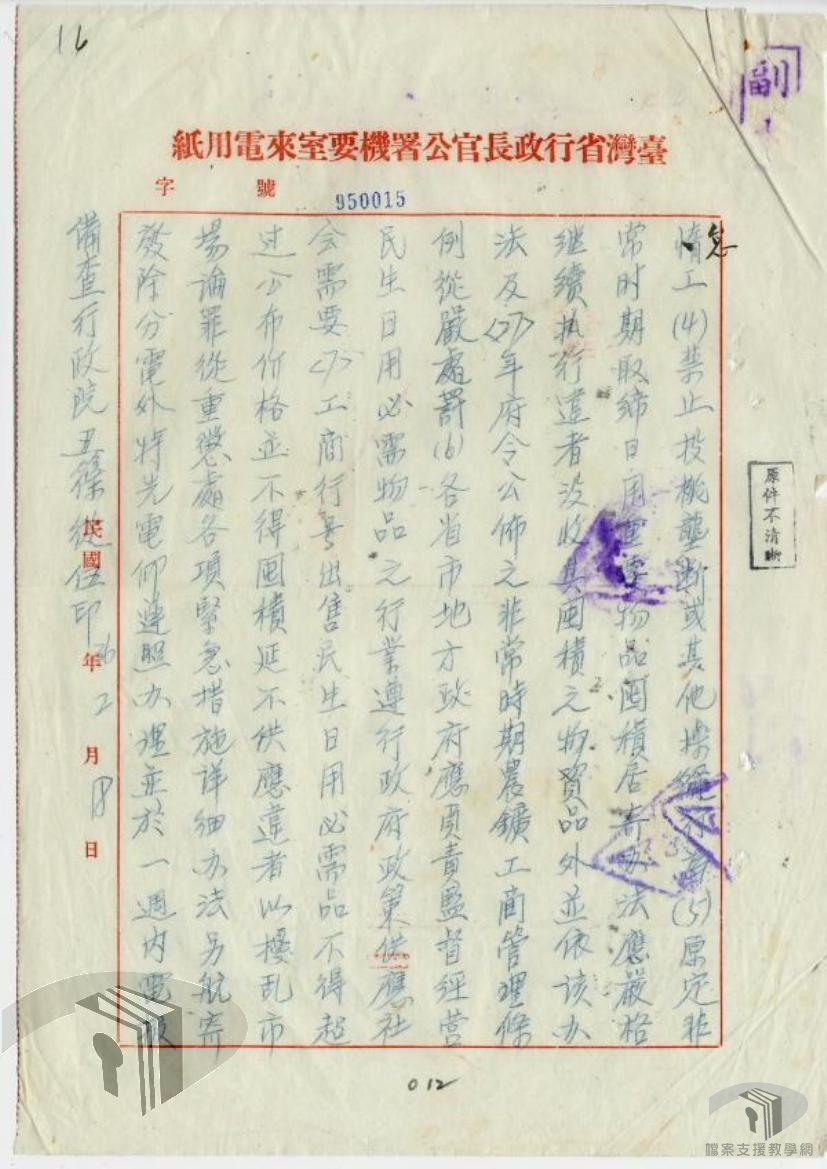 16
副
臺灣省行政長官公署機要室來電用紙
字 號 950015
怠
惰工(4)禁止投机壟斷或其他操縱行為(5)原定非
常时期取締日用重要物品囤積居奇办法應嚴格
継續执行違者没收其囤積之物資品外並依该办
法及<27>年府令公佈之非常時期農鑛工商管理條
例從嚴處罰(6)各省市地方政府應負責監督經营
民生日用必需物品之行業遵行政府政策供應社
会需要<7>工商行号出售民生日用必需品不得超
过公布价格並不得囤積延不供應違者以擾乱市
場論罪從重懲處各項緊急措施详细办法另航寄
發除分電外特先電仰遵照办理並於一週内電报
備查行政院丑篠從伍印
民國36年2月18日
原件不清晰
012
檔案支援教學網